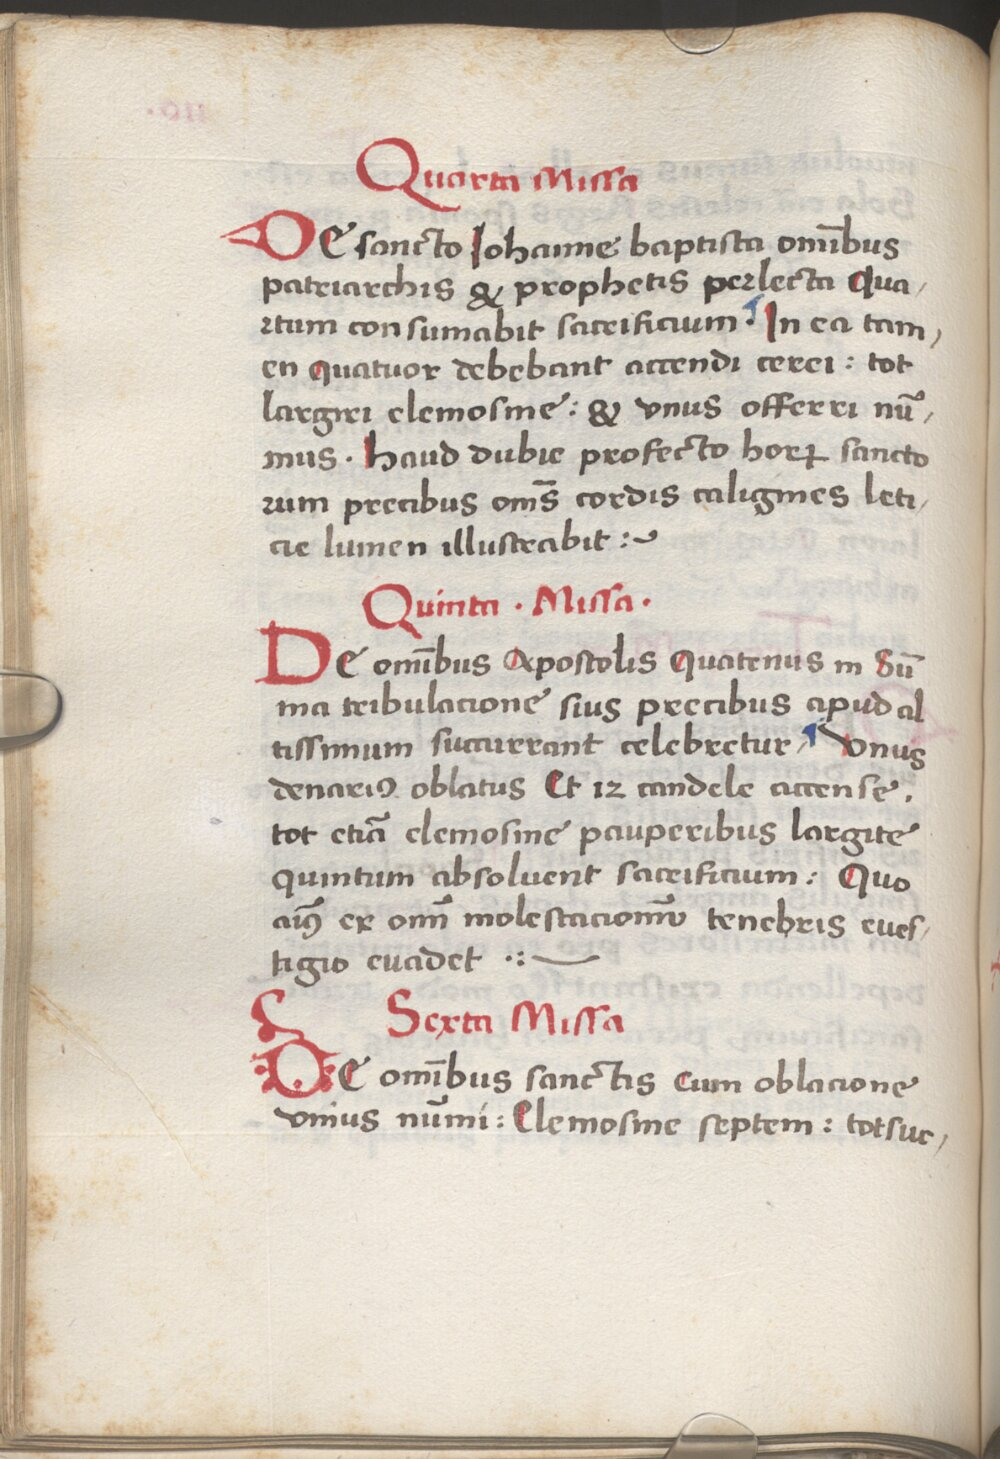 Quarta Missa
De sancto Iohanne baptista om̄ibus
patriarchis & prophetis perlecta Qua/
rtum consumabit sacrificium. In ea tam/
en quatuor debebant accendi cerei: tot
largiri elemosine: & vnus offerri nū/
mus. haud dubie profecto horꝝ sancto
rum precibus om̄s cordis caligines leti/
cie lumen illustrabit:~
Quinta. Missa.
De om̄ibus Apostolis Quatenus in Sū
ma tribulacione suis precibus apud al
tissimum succurrant celebretur/ Vnus
denariꝰ oblatus Et 12 candele accense.
tot etiā elemosine pauperibus largite
quintum absoluent sacrificium: Quo
ex om̄i molestacionū tenebris eues/
tigio euadet
Sexta Missa
De om̄ibus sanctis cum oblacione
vnius nūmi: Elemosine septem: tot suc/